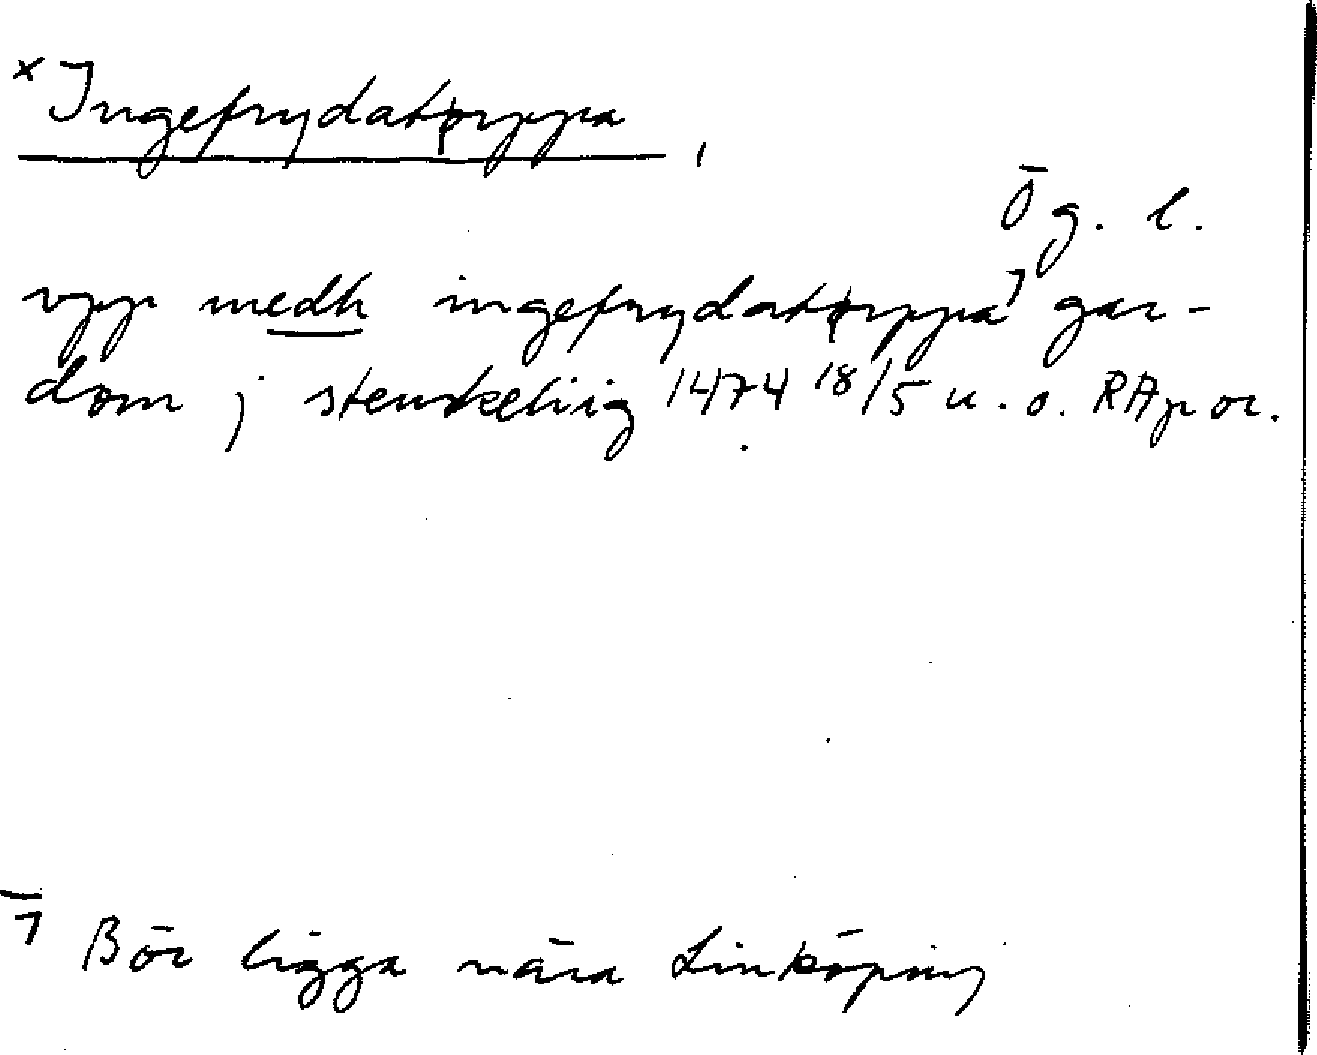 × Ingefrydatorppa,
Ög. l.
vpp medh ingefrydatorppa 1) gar-
dom j stenkeliig 1474 18/5 u. o. RAp or.
1 Bör ligga nära Linköping